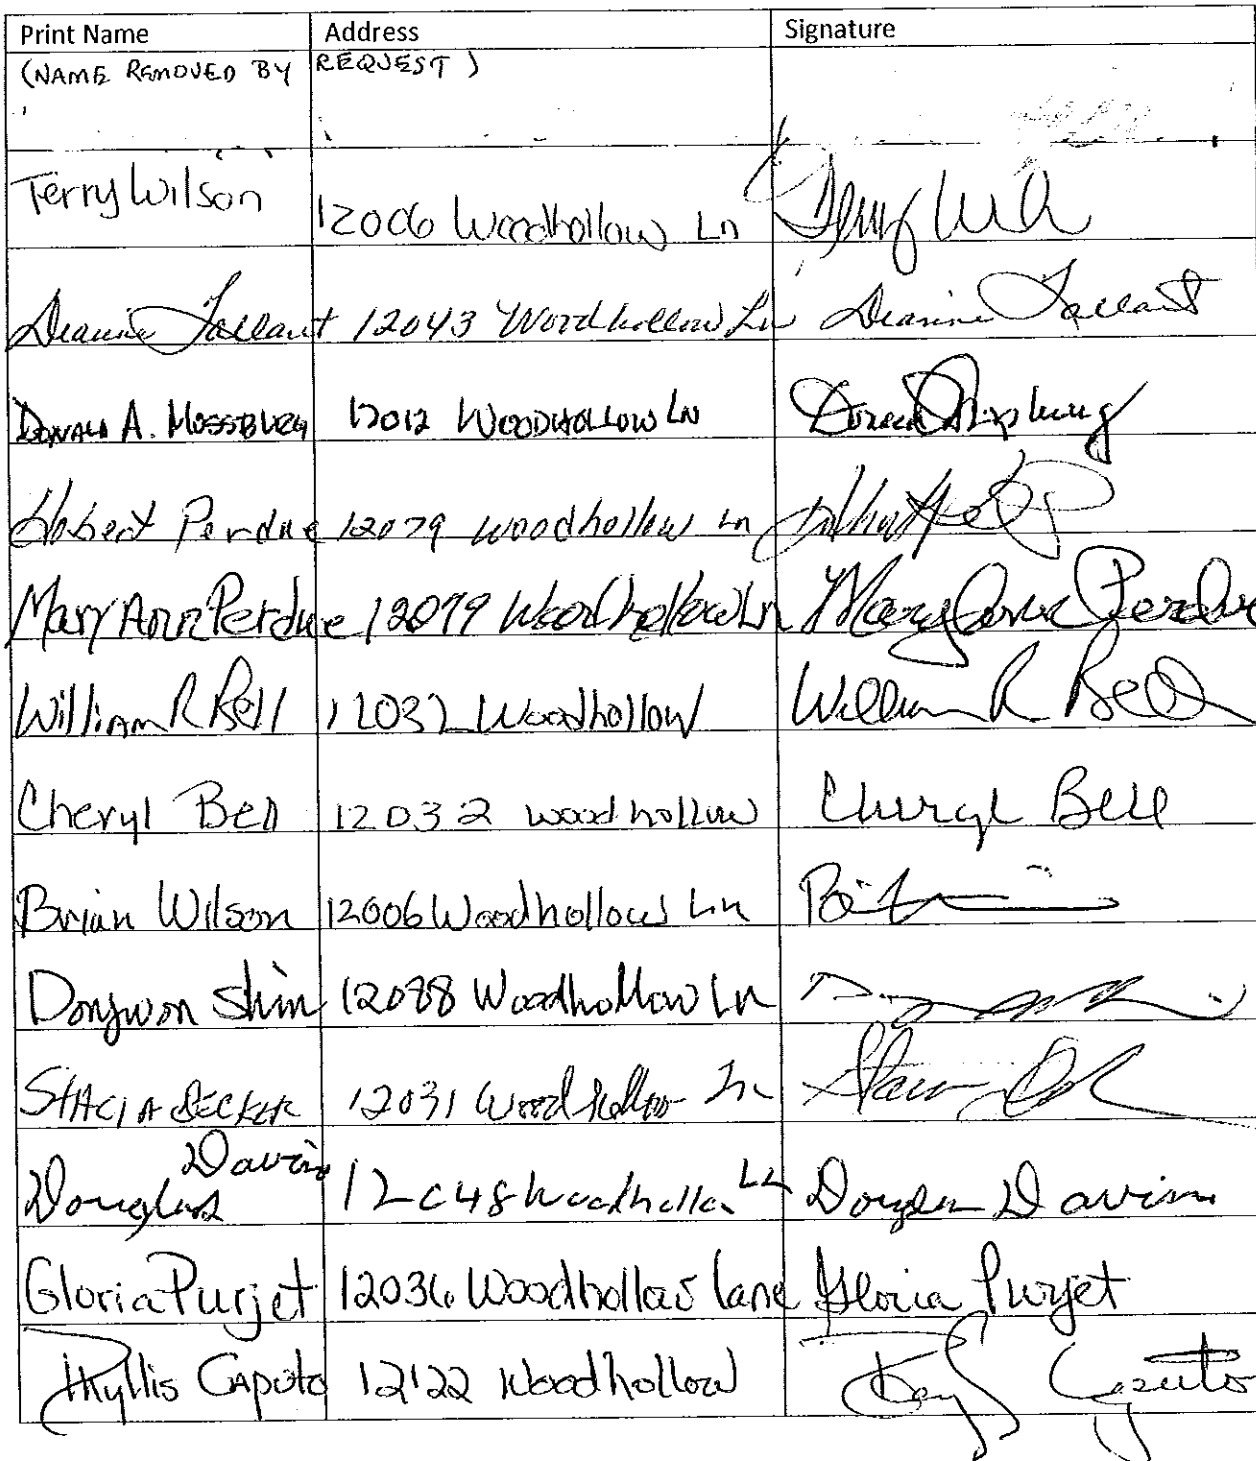 Print Name Address Signature
(NAME REMOVED BY REQUEST)
Terry Wilson 12006 Woodhollow Ln Terry Wil
Deanne Tallant 12043 Woodhollow Ln Deanne Tallant
Donald A. Mossburg 12012 WOODHOLLOW LN
Hobert Perdue 12079 Woodhollow Ln
Mary Ann Perdue 12079 Woodhollow Ln Mary Ann Perdue
William R Bell 12032 Woodhollow William R Bell
Cheryl Bell 12032 woodhollow Cheryl Bell
Brian Wilson 12006 Woodhollow Ln
Dongwon Shin 12088 Woodhollow Ln
STACIA BECKER 12031 Woodhollow Ln
Douglas Davis 12048 Woodhollow Ln Douglas Davis
Gloria Purjet 12036 Woodhollow Lane Gloria Purjet
Phyllis Caputo 12122 Woodhollow Caputo